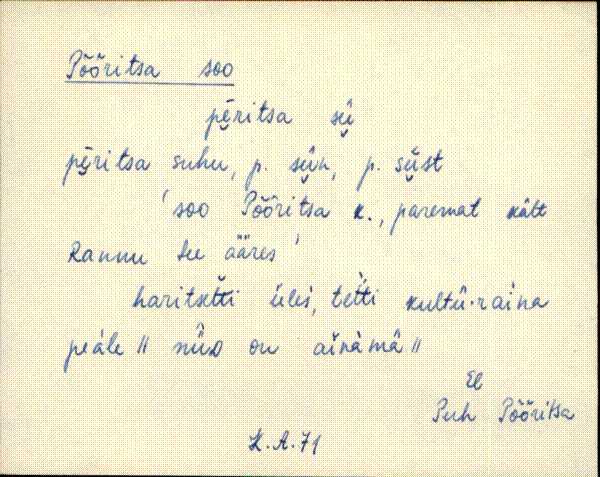 Põõritsa soo
pē̮ritsa sū̬
pē̮ritsa suhu, p. sū̬n, p. sū̬st
'soo Põõritsa k., paremat kätt
Rannu tee ääres'
haritsetti üleś, tetti kultū·raìna
peále || nüD on aìnàmā ||
El
Puh Põõritsa
K.A.71